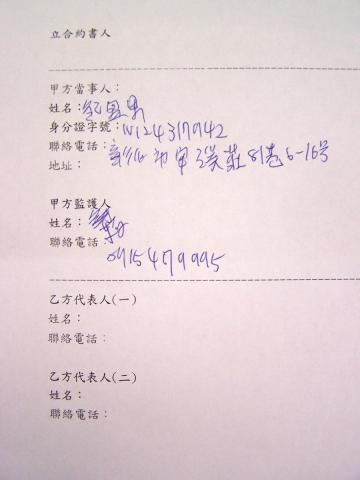 立合約書人
甲方當事人：
姓名：
身分證字號：N124317942
聯絡電話：彰化市單張莊81巷6-16號
地址：
甲方監護人
姓名：
聯絡電話
0915479995
乙方代表人(一)
姓名：
聯絡電話：
乙方代表人(二)
姓名：
聯絡電話：